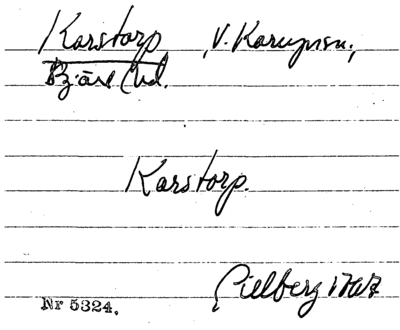 Karstorp, V. Karupssn.,
Bjäre hd.
Karstorp.
Gillberg 1767
Nr 5324.